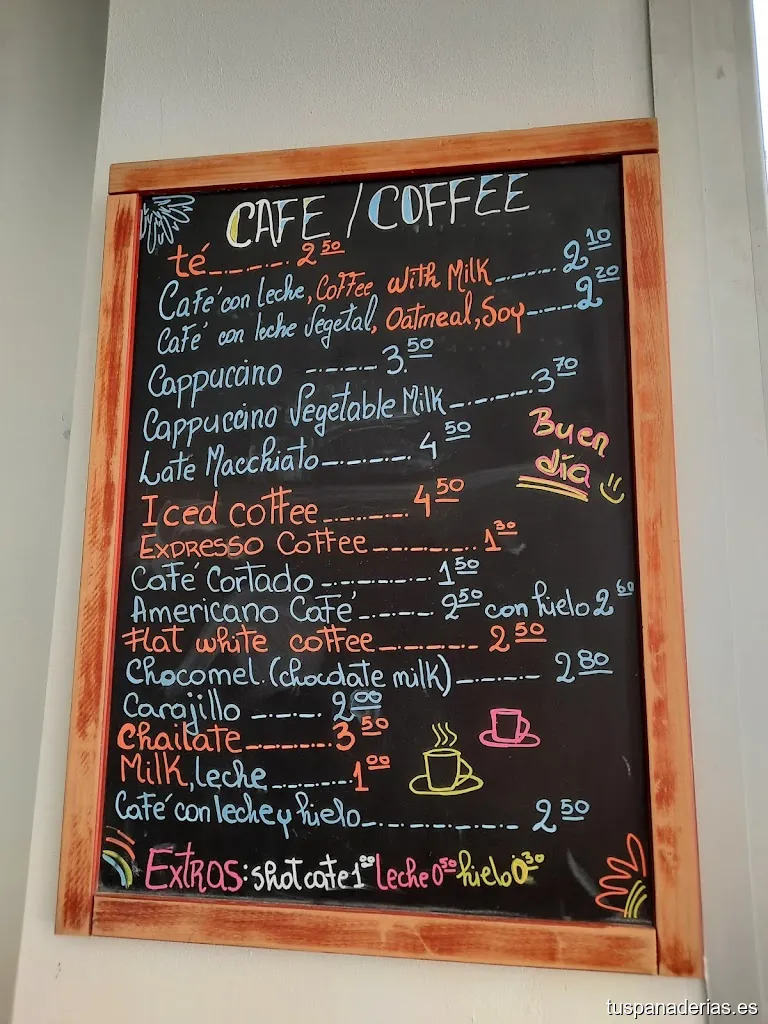 CAFE / COFFEE
té 2.50
Café con leche, Coffee with Milk 2.10
Café con leche Vegetal, Oatmeal, Soy 2.20
Cappuccino 3.50
Cappuccino Vegetable Milk 3.70
Late Macchiato 4.50
Buen día
Iced coffee 4.50
Expresso Coffee 1.30
Café Cortado 1.50
Americano Café 2.50 con hielo 2.60
Flat white coffee 2.50
Chocomel. (chocolate milk) 2.80
Carajillo 2.00
Chailate 3.50
Milk, leche 1.00
Café con leche y hielo 2.50
Extras: shot cafe leche 0.50 hielo 0.30
tuspanaderias.es